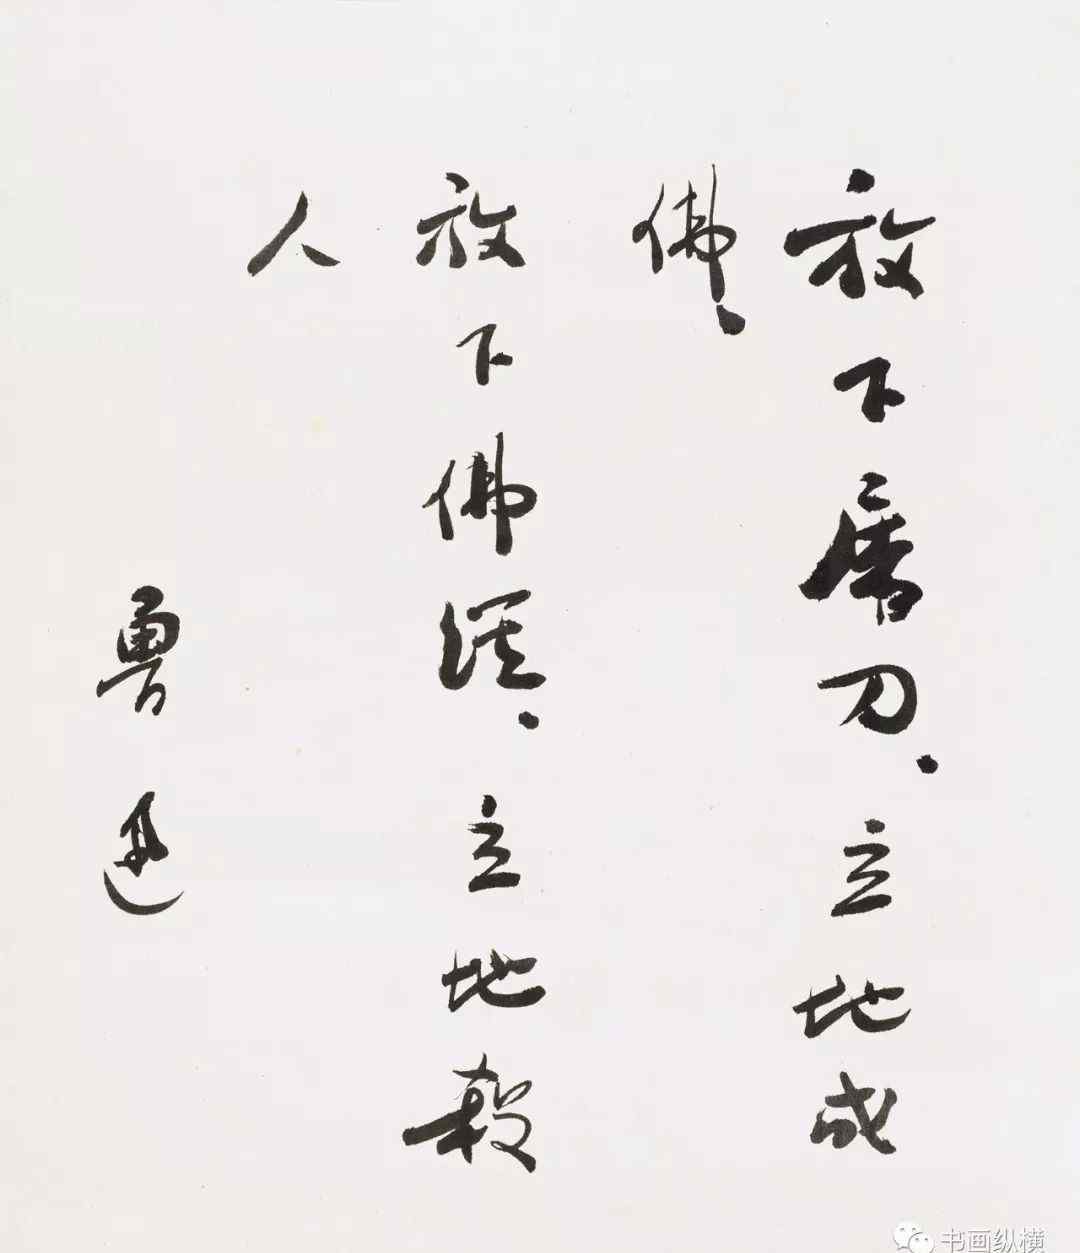 放下屠刀、立地成
佛、
放下佛經、立地殺
人
魯迅
书画纵横